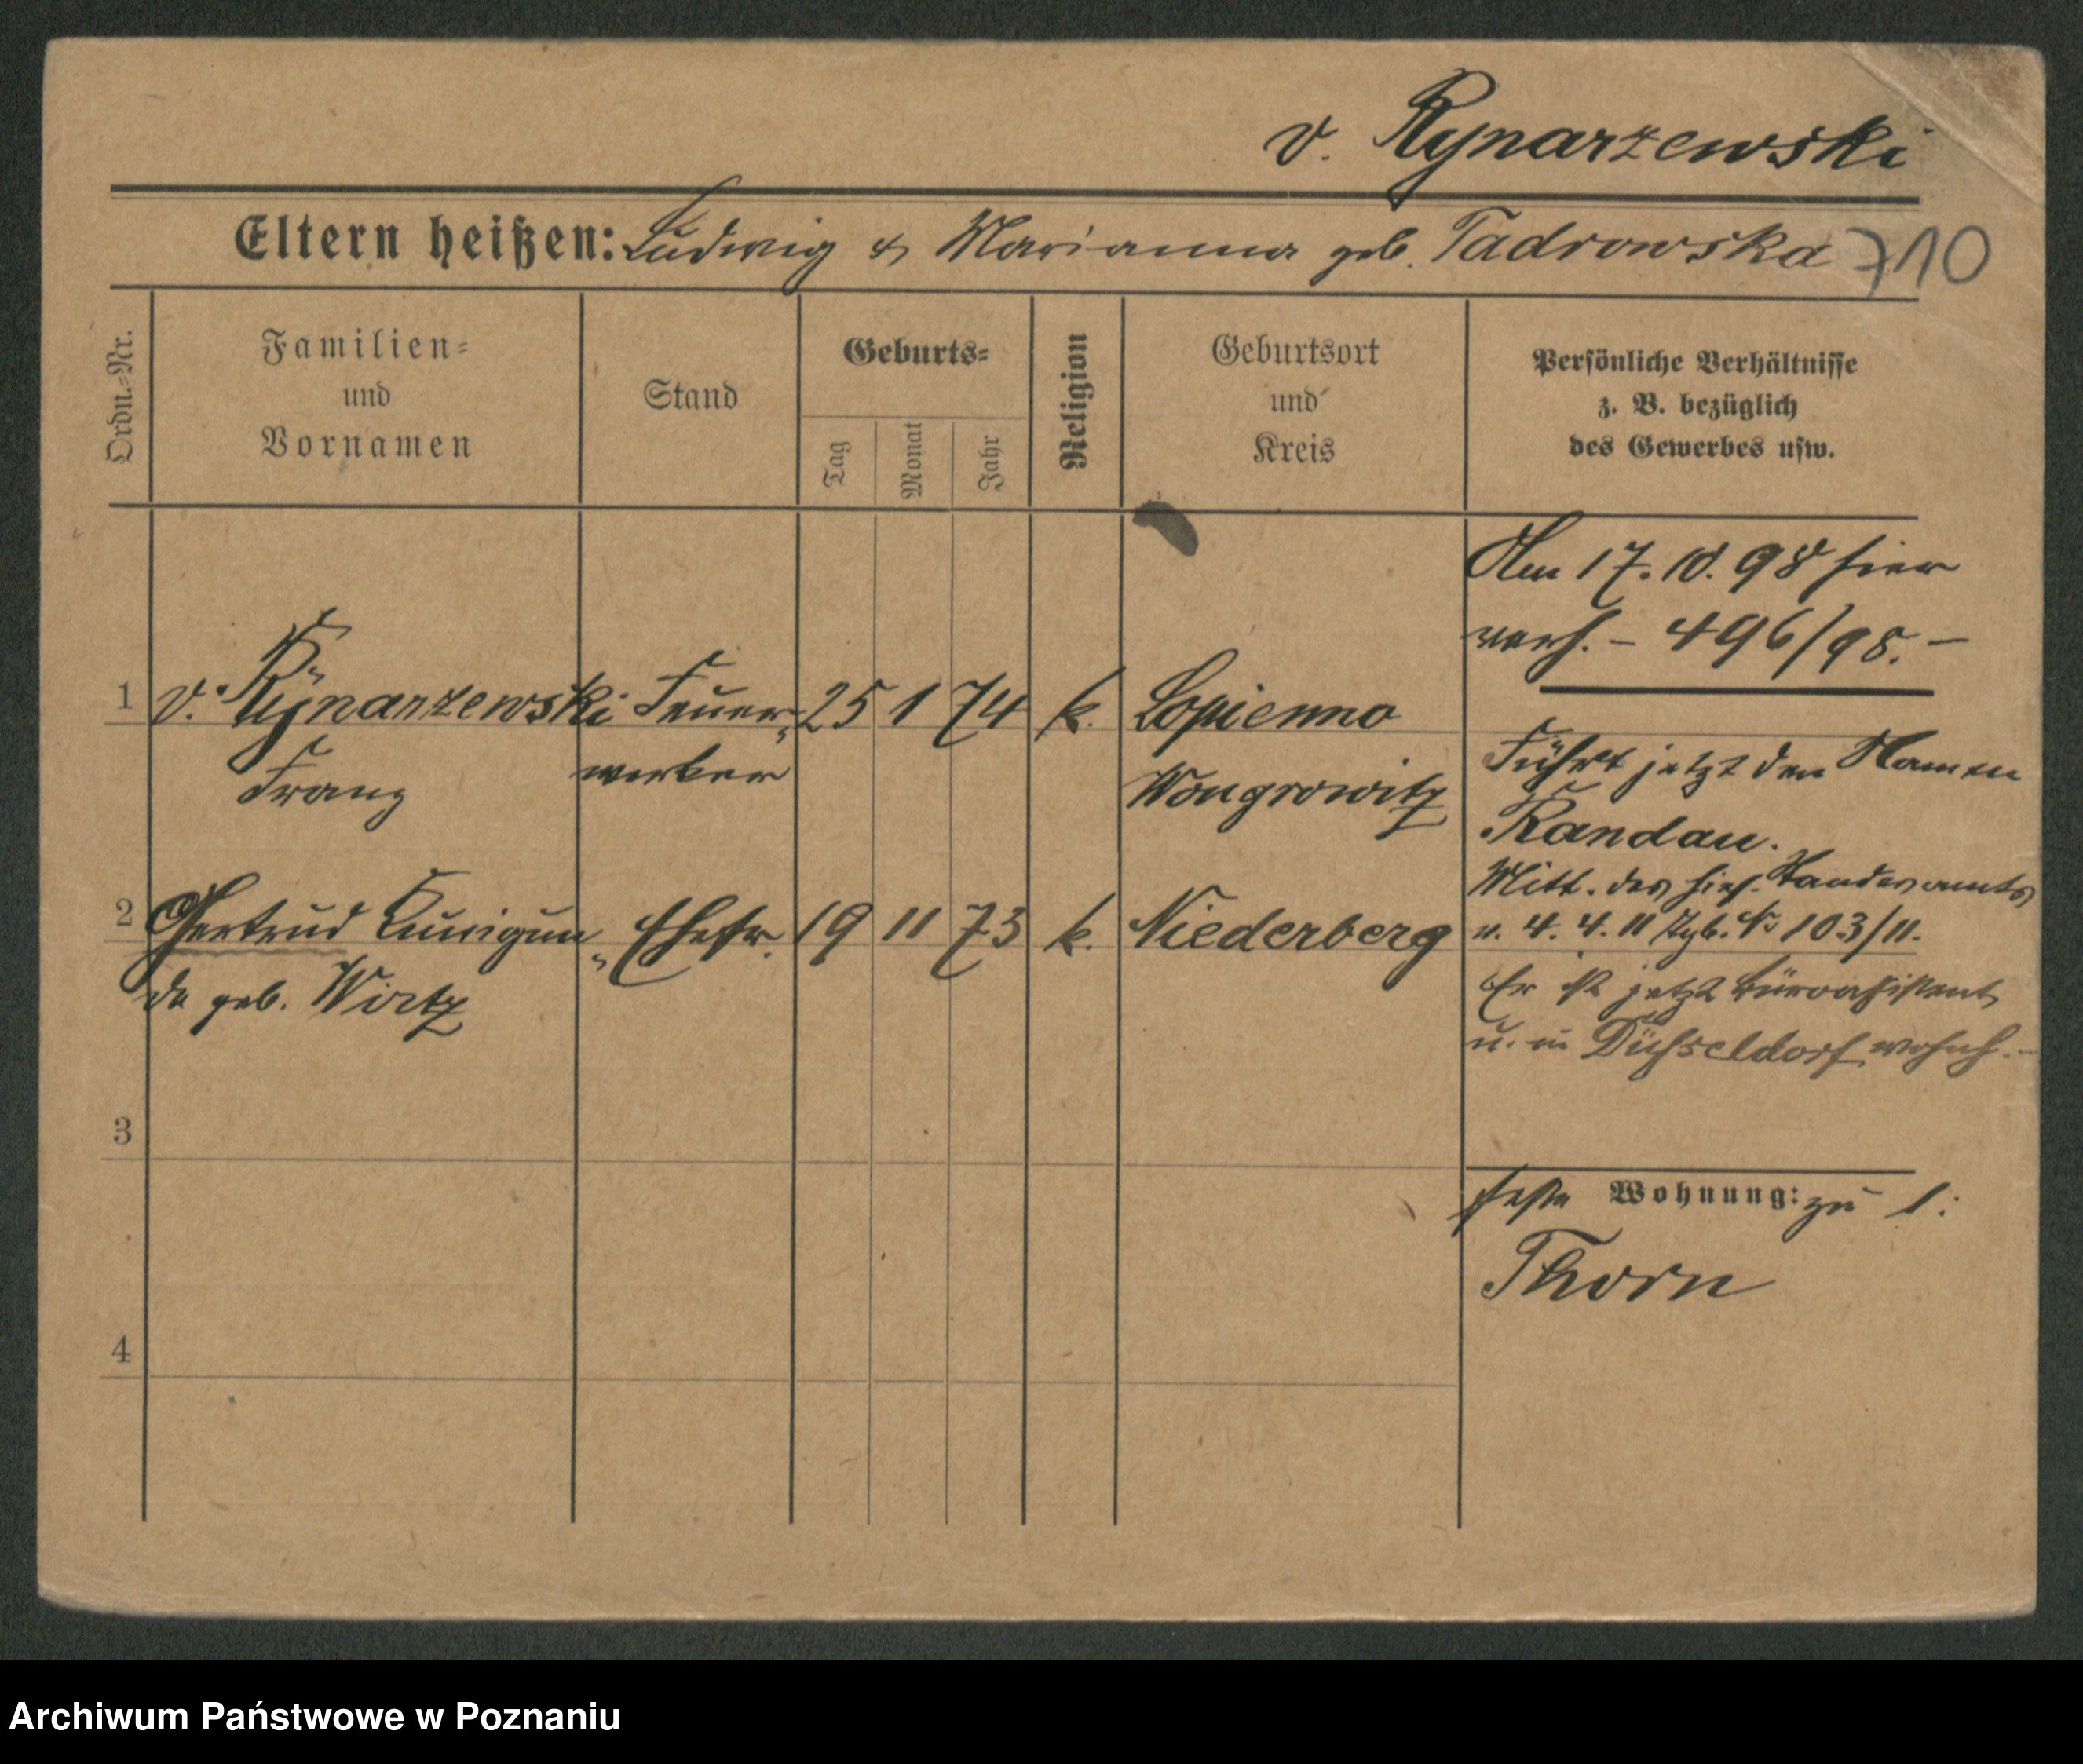 v. Rynarzewski
Eltern heißen: Ludwig & Marianna geb. Tadrowska
710
Ordn.-Nr.
Familien-
und
Vornamen
Stand
Geburts-
Tag
Monat
Jahr
Religion
Geburtsort
und
Kreis
Persönliche Verhältnisse
z. B. bezüglich
des Gewerbes usw.
Am 17. 10. 98 hier
verh. – 496/98. –
1 v. Rynarzewski Feuer- 25 1 74 k. Lopienno
Franz werker Wongrowitz
Führt jetzt den Namen
Randau.
Mitt. des hies. Standesamts
v. 4. 4. 11 Tgb. No 103/11.
2 Gertrud Kunigun- Ehefr. 19 11 73 k. Niederberg
de geb. Wirtz
Er ist jetzt Büroassistent
u. in Düsseldorf wohnh. –
3
feste Wohnung: zu 1:
Thorn
4
Archiwum Państwowe w Poznaniu